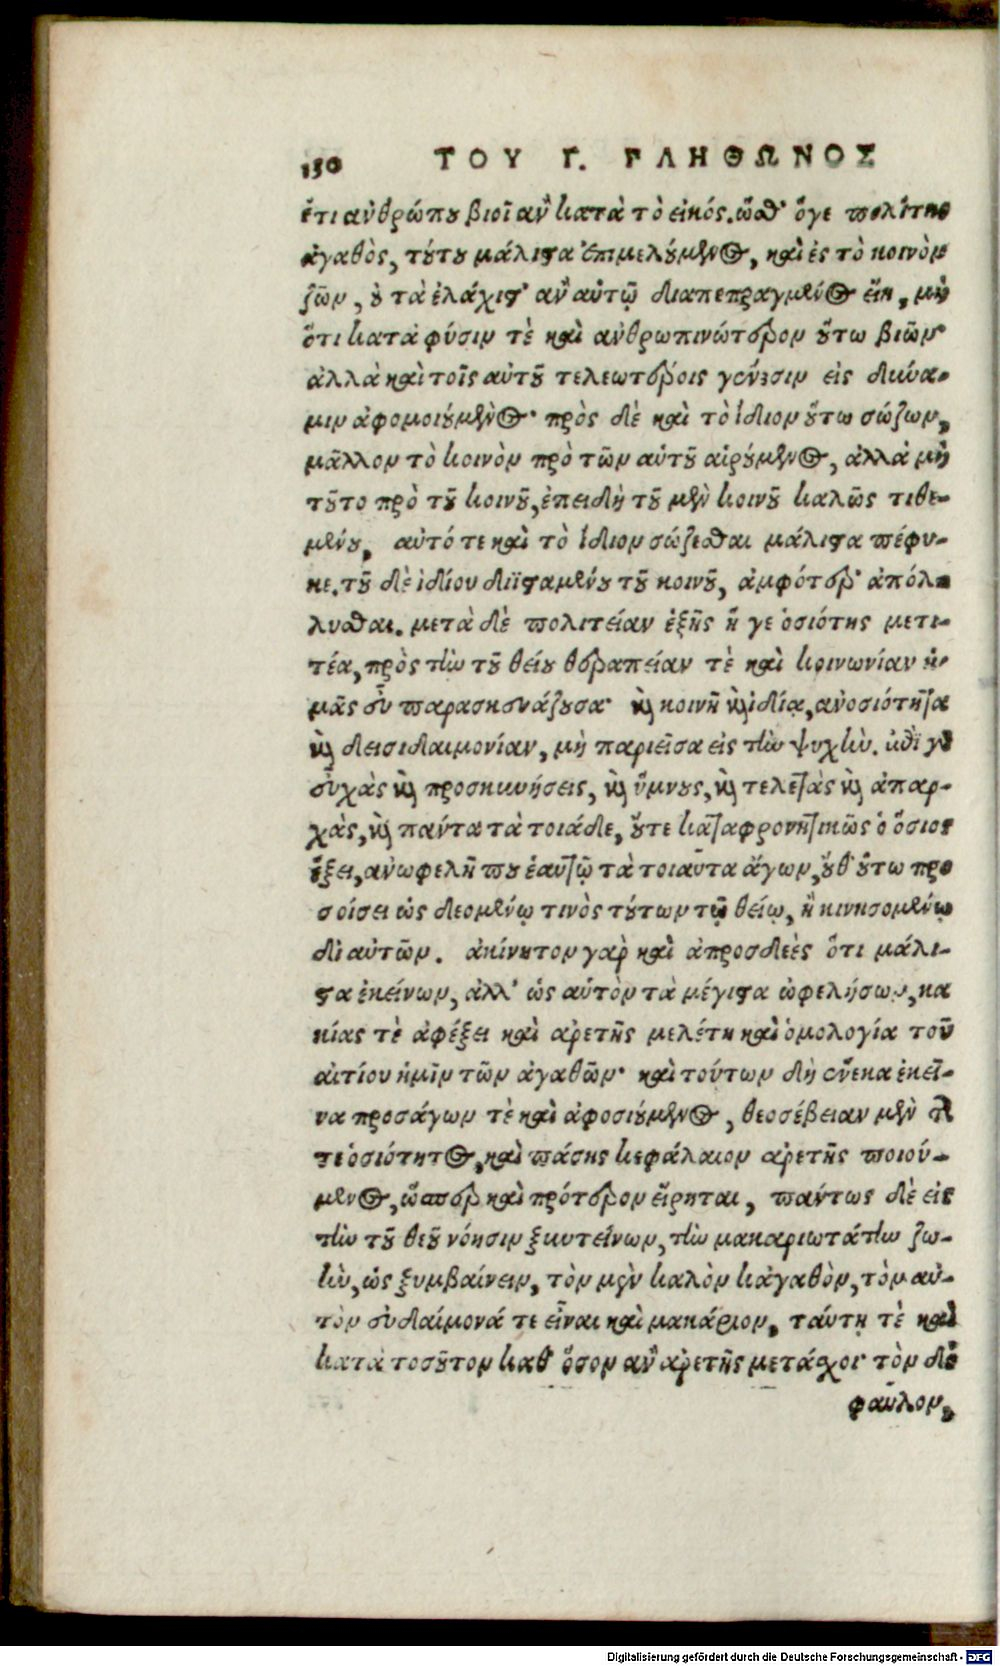 150 ΤΟΥ Γ. ΓΛΗΘΩΝΟΣ
ἔτι ἀνθρώπου βιοῖ ἂν κατὰ τὸ εἰκός. ὥσθ' ὅγε πολίτης
ἀγαθὸς, τούτου μάλιστα ἐπιμελούμενος, καὶ ἐς τὸ κοινὸν
ζῶν, οὐ τὰ ἐλάχιστ' ἂν αὐτῷ διαπεπραγμένος εἴη, μὴ
ὅτι κατὰ φύσιν τὲ καὶ ἀνθρωπινώτερον οὕτω βιῶν·
ἀλλὰ καὶ τοῖς αὐτοῦ τελεωτέροις γένεσιν εἰς δύνα-
μιν ἀφομοιούμενος· πρὸς δὲ καὶ τὸ ἴδιον οὕτω σώζων,
μᾶλλον τὸ κοινὸν πρὸ τῶν αὑτοῦ αἱρούμενος, ἀλλὰ μὴ
τοῦτο πρὸ τοῦ κοινοῦ, ἐπειδὴ τοῦ μὲν κοινοῦ καλῶς τιθε-
μένου, αὐτό τε καὶ τὸ ἴδιον σώζεσθαι μάλιστα πέφυ-
κε. τοῦ δὲ ἰδίου διϊσταμένου τοῦ κοινοῦ, ἀμφότερ' ἀπόλ-
λυσθαι. μετὰ δὲ πολιτείαν ἑξῆς ἥ γε ὁσιότης μετι-
τέα, πρὸς τὴν τοῦ θείου θεραπείαν τὲ καὶ κοινωνίαν ἡ-
μᾶς εὖ παρασκευάζουσα· καὶ κοινῇ καὶ ἰδίᾳ, ἀνοσιότητα
καὶ δεισιδαιμονίαν, μὴ παριεῖσα εἰς τὴν ψυχήν. ἐπεὶ γὰρ
εὐχὰς καὶ προσκυνήσεις, καὶ ὕμνους, καὶ τελετὰς καὶ ἀπαρ-
χὰς, καὶ πάντα τὰ τοιάδε, οὔτε καταφρονητικῶς ὁ ὅσιος
ἕξει, ἀνωφελῆ που ἑαυτῷ τὰ τοιαῦτα ἄγων, οὔθ' οὕτω προ
σοίσει ὡς δεομένῳ τινὸς τούτων τῷ θείῳ, ἢ κινησομένῳ
δι αὐτῶν. ἀκίνητον γαρ καὶ ἀπροσδεὲς ὅτι μάλι-
στα ἐκείνων, ἀλλ' ὡς αὑτὸν τὰ μέγιστα ὠφελήσων, κα
κίας τὲ ἀφέξει καὶ ἀρετῆς μελέτη καὶ ὁμολογία τοῦ
αἰτίου ἡμῖν τῶν ἀγαθῶν· καὶ τούτων δὴ ἕνεκα ἐκεῖ-
να προσάγων τὲ καὶ ἀφοσιούμενος, θεοσέβειαν μὲν
τε ὁσιότητος, καὶ πάσης κεφάλαιον ἀρετῆς ποιού-
μενος, ὥσπερ καὶ πρότερον εἴρηται, πάντως δὲ εἰς
τὴν τοῦ θεοῦ νόησιν ξυντείνων, τὴν μακαριωτάτην ζω-
ὴν, ὡς ξυμβαίνειν, τὸν μὲν καλὸν κἀγαθὸν, τὸν αὐ-
τὸν εὐδαίμονά τε εἶναι καὶ μακάριον, ταύτῃ τὲ καὶ
κατὰ τοσοῦτον καθ' ὅσον ἂν ἀρετῆς μετάσχοι· τὸν δὲ
φαῦλον,
Digitalisierung gefördert durch die Deutsche Forschungsgemeinschaft - DFG